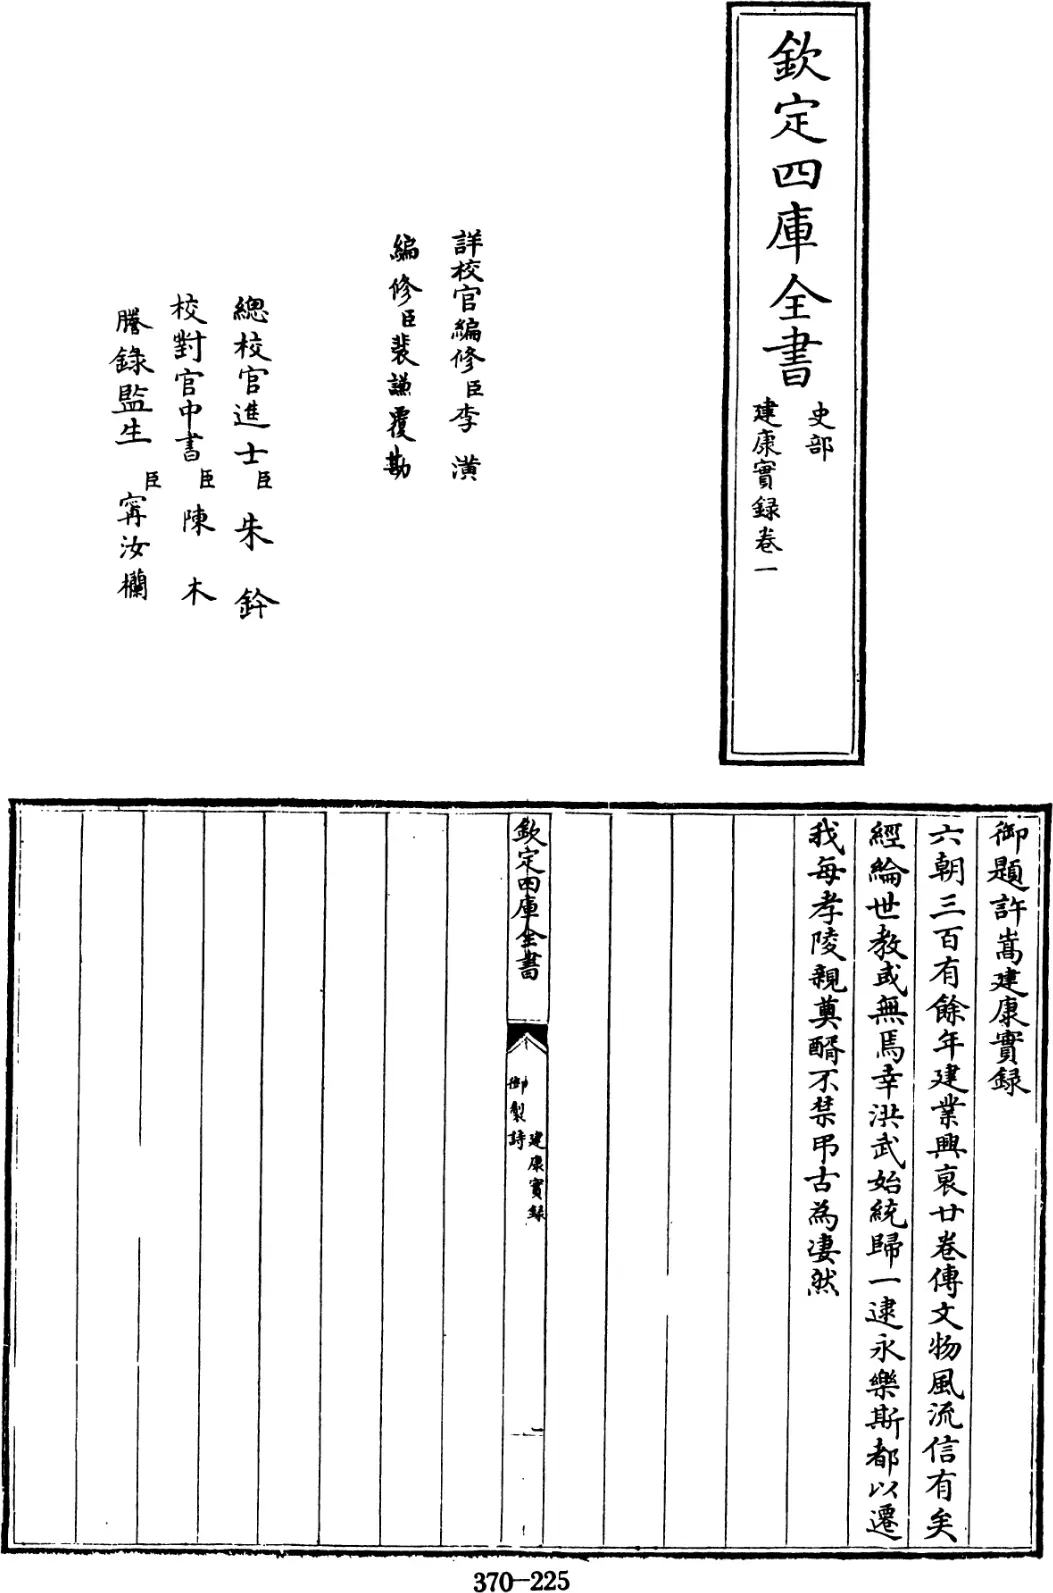 欽定四庫全書
史部
建康實録卷一
詳校官編修臣李潢
編修臣裴謙覆勘
總校官進士臣朱鈐
校對官中書臣陳木
謄錄監生臣甯汝欄
御題許嵩建康實録
六朝三百有餘年建業興衰廿卷傳文物風流信有矣
經綸世教或無焉幸洪武始統歸一逮永樂斯都以遷
我每孝陵親奠酹不禁弔古為凄然
欽定四庫全書
御製詩
建康實録
一
370-225